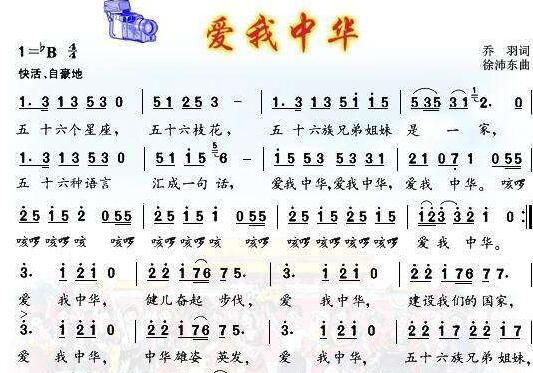 爱我中华
1=♭B 4/4
乔羽词
快活、自豪地
徐沛东曲
1. 3 1 3 5 3 0 | 5 1 2 1 5 3 - | 1. 3 1 3 5 i i 5 | 5 3 5 3 1 2. 0 |
五 十六个星座， 五十六枝花， 五 十六族兄弟姐妹 是 一 家，
1. 3 1 3 5 3 0 | 5 1 i 5 6 - | i 5 5 3 5 5 3 1 | 2 1 0 7 1 0 5 5 |
五 十六种语言 汇成一句 话， 爱我中华，爱我中华， 爱我 中华。 咳啰
2 5 1 5 2 0 5 5 | 2 5 1 5 2 0 5 5 | 2 5 1 5 2 5 1 5 | i 2 3 3 2 i 0 :|
咳啰 咳啰 咳 咳啰 咳啰 咳啰 咳 咳啰 咳啰 咳啰 咳啰 咳啰 爱 我 中华。
3. i 2 i 0 | 2 2 i 7 6 7 5. | 3. i 2 i 0 | 2 2 i 7 6 7 5. |
爱 我 中华， 健儿奋起 步伐， 爱 我 中华， 建设我们的 国家，
3. i 2 i 0 | 2 2 i 7 6 7 5. | 3. i 2 i 0 | 2 2 i 7 6 7 5. |
爱 我 中华， 中华雄姿 英发， 爱 我 中华， 五十六族兄弟 姐妹，